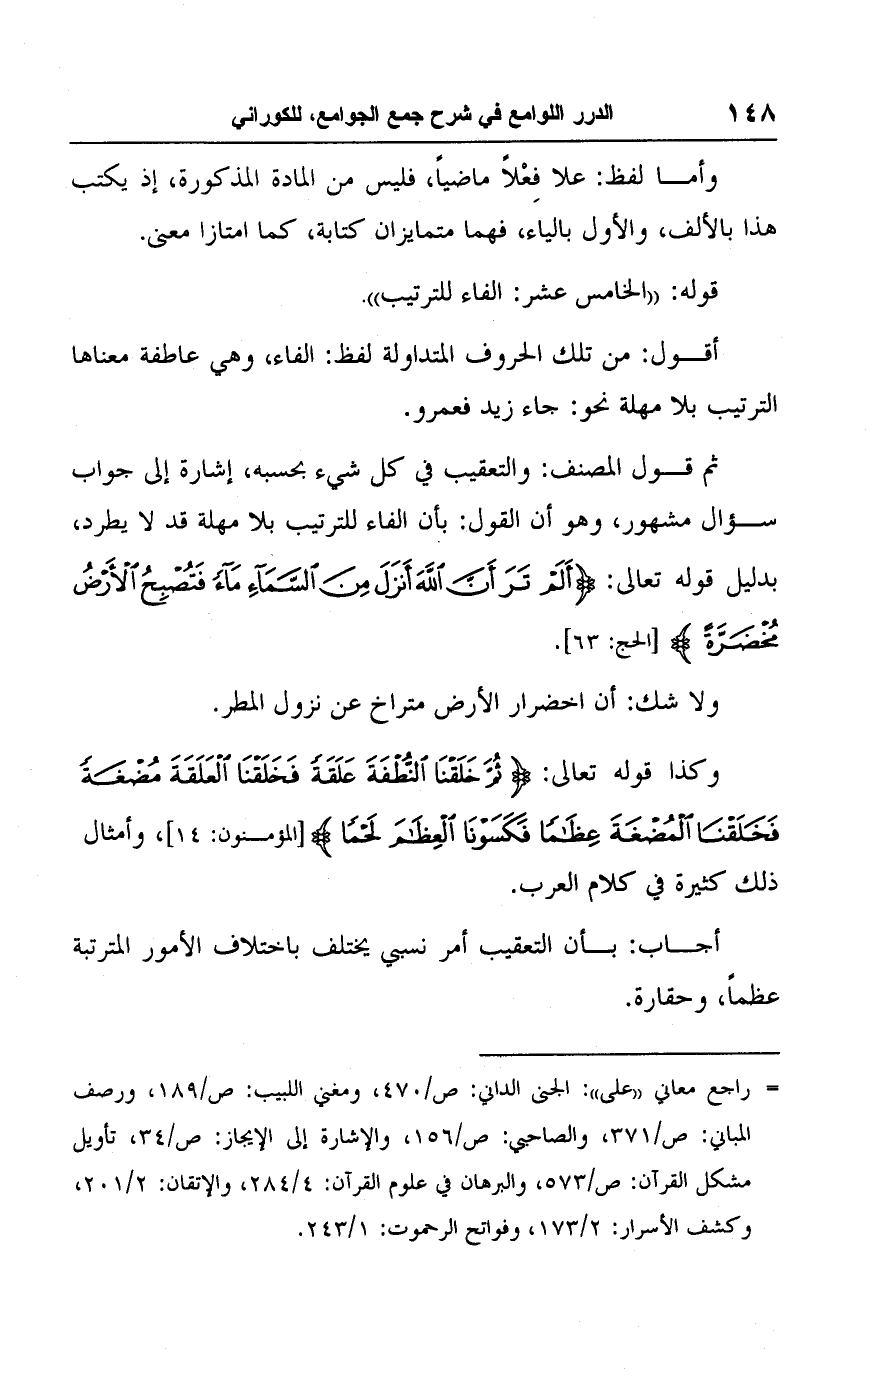 ١٤٨ الدرر اللوامع في شرح جمع الجوامع، للكوراني
وأمـــا لفظ: علا فِعْلاً ماضياً، فليس من المادة المذكورة، إذ يكتب
هذا بالألف، والأول بالياء، فهما متمايزان كتابة، كما امتازا معنى.
قوله: ((الخامس عشر: الفاء للترتيب)).
أقـــول: من تلك الحروف المتداولة لفظ: الفاء، وهي عاطفة معناها
الترتيب بلا مهلة نحو: جاء زيد فعمرو.
ثم قـــول المصنف: والتعقيب في كل شيء بحسبه، إشارة إلى جواب
ســؤال مشهور، وهو أن القول: بأن الفاء للترتيب بلا مهلة قد لا يطرد،
بدليل قوله تعالى: ﴿أَلَمْ تَرَ أَنَّ ٱللَّهَ أَنزَلَ مِنَ ٱلسَّمَآءِ مَآءً فَتُصْبِحُ ٱلْأَرْضُ
مُخْضَرَّةً﴾ [الحج: ٦٣].
ولا شك: أن اخضرار الأرض متراخ عن نزول المطر.
وكذا قوله تعالى: ﴿ثُمَّ خَلَقْنَا ٱلنُّطْفَةَ عَلَقَةً فَخَلَقْنَا ٱلْعَلَقَةَ مُضْغَةً
فَخَلَقْنَا ٱلْمُضْغَةَ عِظَٰمًا فَكَسَوْنَا ٱلْعِظَٰمَ لَحْمًا﴾ [المؤمـــنون: ١٤]، وأمثال
ذلك كثيرة في كلام العرب.
أجـــاب: بـــأن التعقيب أمر نسبي يختلف باختلاف الأمور المترتبة
عظماً، وحقارة.
= راجع معاني ((على)): الجنى الداني: ص/٤٧٠، ومغني اللبيب: ص/١٨٩، ورصف
المباني: ص/٣٧١، والصاحبي: ص/١٥٦، والإشارة إلى الإيجاز: ص/٣٤، تأويل
مشكل القرآن: ص/٥٧٣، والبرهان في علوم القرآن: ٢٨٤/٤، والإتقان: ٢٠١/٢،
وكشف الأسرار: ١٧٣/٢، وفواتح الرحموت: ٢٤٣/١.